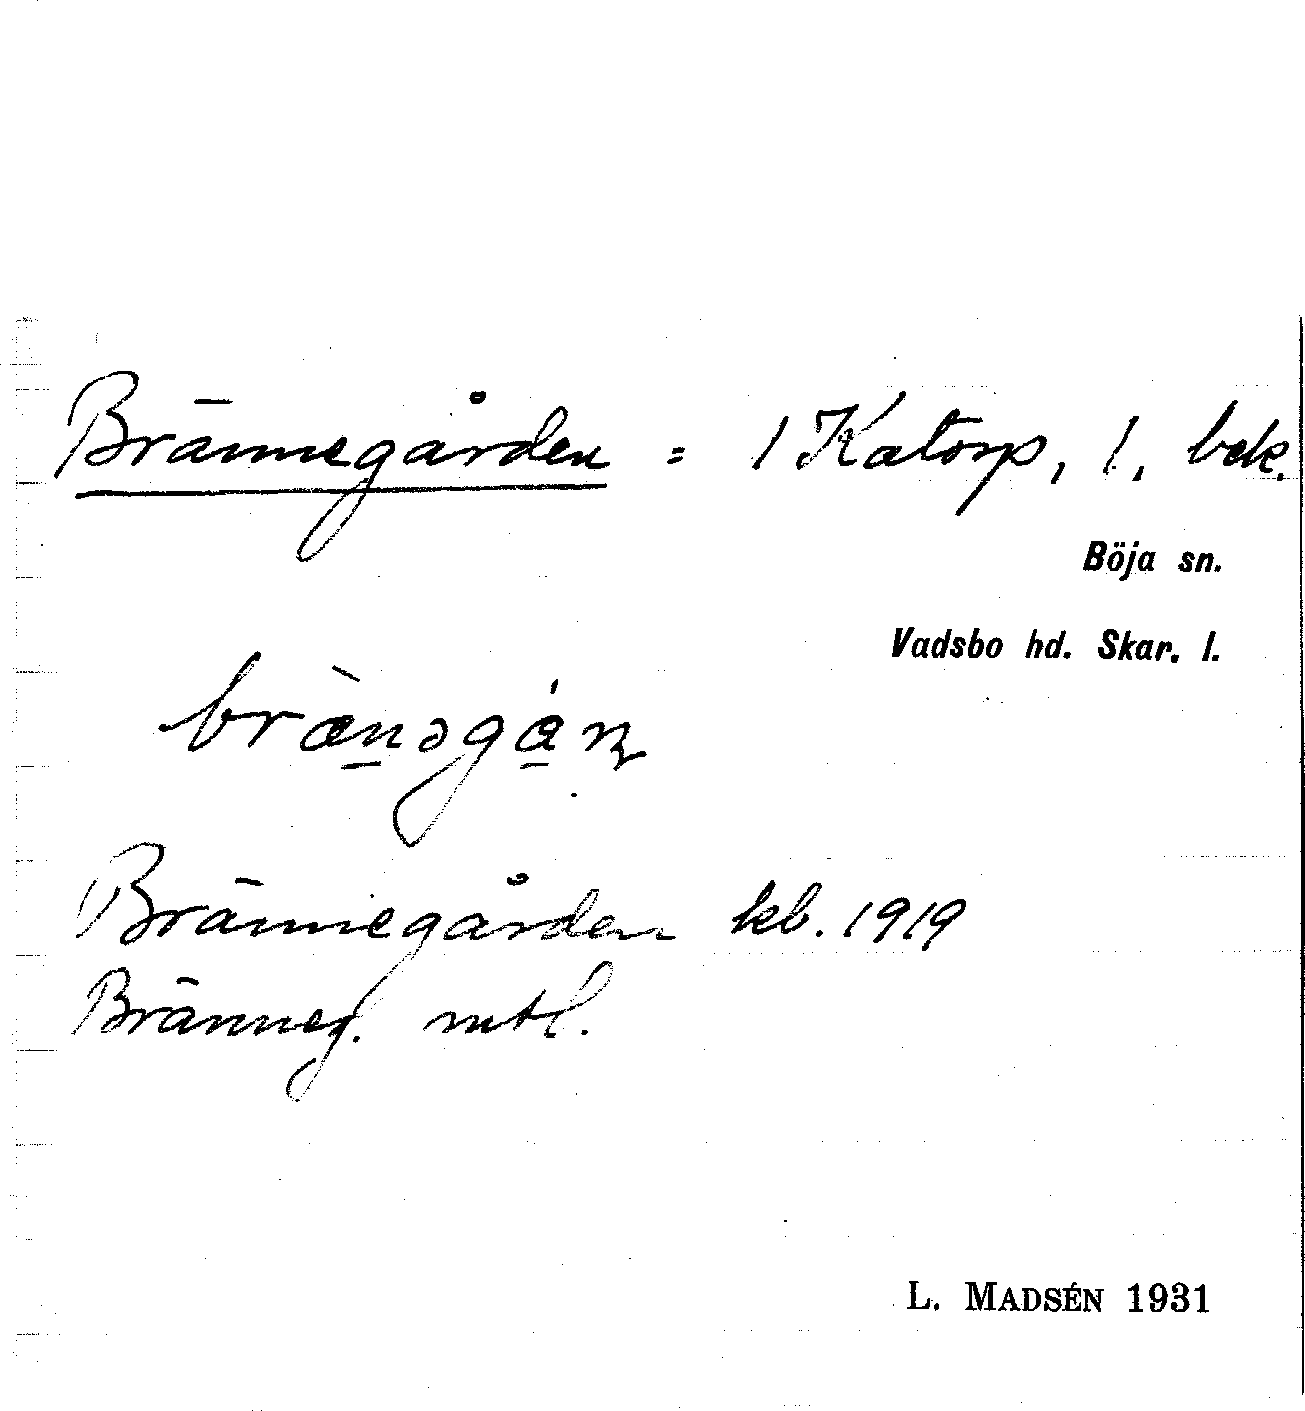 Brännegården = 1 Katorp, 1, bek.
Böja sn.
Vadsbo hd. Skar. l.
Brännegården kb. 1919
Bränneg. mtl.
L. MADSÉN 1931